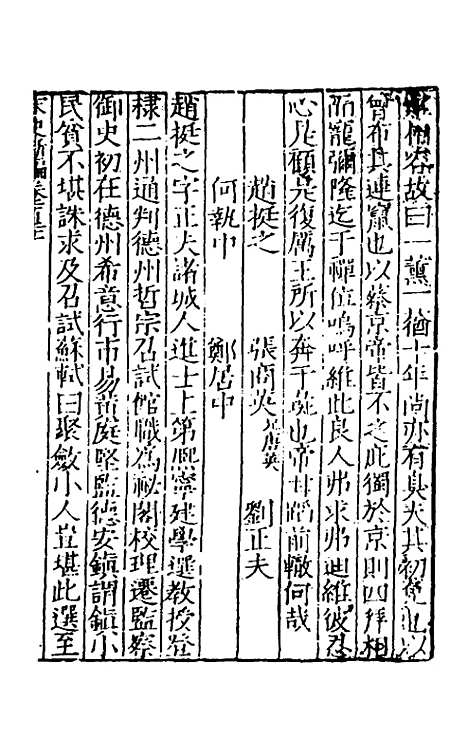 相容故曰一薰一蕕十年尚亦有臭夫其初免也以
曾布其連竄也以蔡京帝皆不之庇獨於京則四拜相
而寵彌隆迄于禪位嗚呼維此良人弗求弗迪維彼忍
心是顧是復厲王所以奔于彘也帝毋蹈前轍何哉
趙挺之 張商英兄唐英 劉正夫
何執中 鄭居中
趙挺之字正夫諸城人進士上第熙寧建學選教授登
棣二州通判德州哲宗召試館職為祕閣校理遷監察
御史初在德州希意行市易黃庭堅監德安鎮謂鎮小
民貧不堪誅求及召試蘇軾曰聚斂小人豈堪此選至
宋史新編卷一百